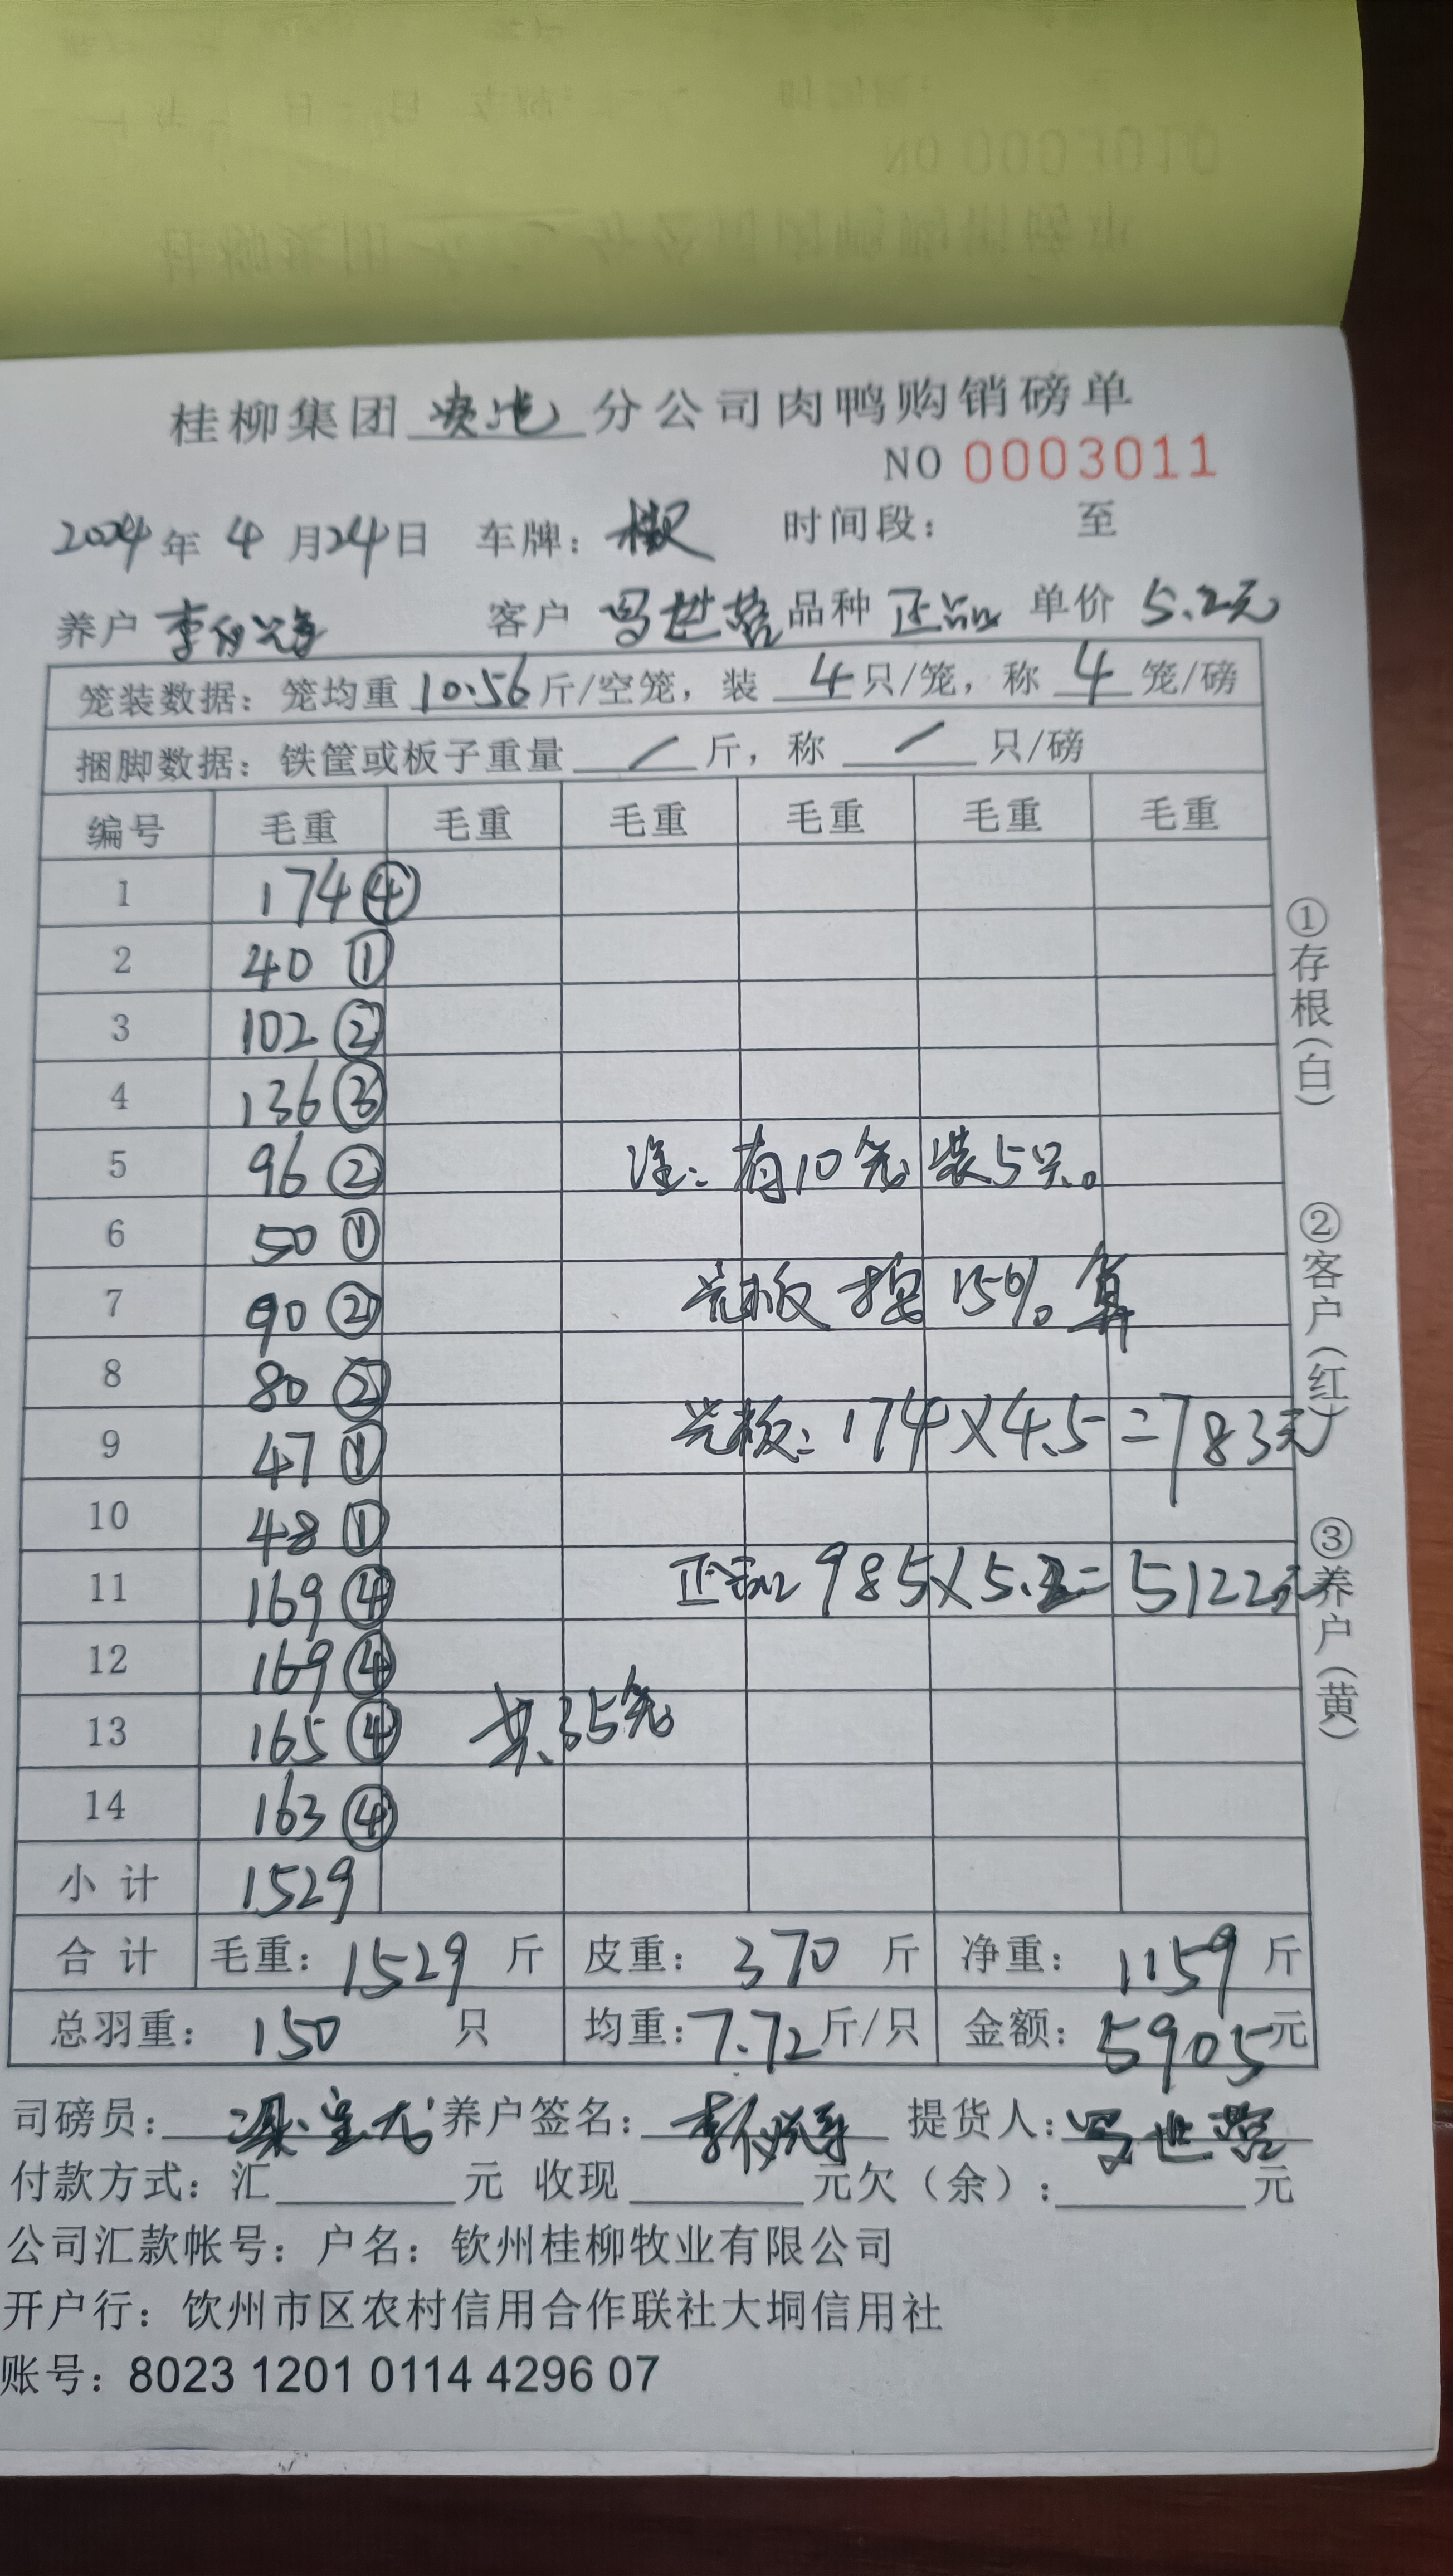 桂柳集团 分公司肉鸭购销磅单
NO 0003011
2024年 4月24日 车牌： 时间段： 至
养户 李 客户 冯世营 品种 正品 单价 5.2元
笼装数据：笼均重 10.56 斤/空笼，装 4 只/笼，称 4 笼/磅
捆脚数据：铁筐或板子重量 / 斤，称 / 只/磅
编号 毛重 毛重 毛重 毛重 毛重 毛重
1 174 ④
2 40 ①
3 102 ②
4 136 ③
5 96 ② 注：有10笼装5只。
6 50 ①
7 90 ② 光板按15%算
8 80 ②
9 47 ① 光板：174×4.5=783元
10 48 ①
11 169 ④ 正品 985×5.2=5122元
12 169 ④
13 165 ④ 共35笼
14 163 ④
小计 1529
合计 毛重：1529 斤 皮重：370 斤 净重：1159 斤
总羽重：150 只 均重：7.72 斤/只 金额：5905元
司磅员： 养户签名：李 提货人：冯世营
付款方式：汇 元 收现 元欠（余）： 元
公司汇款帐号：户名：钦州桂柳牧业有限公司
开户行：饮州市区农村信用合作联社大垌信用社
账号：8023 1201 0114 4296 07
①存根（白）
②客户（红）
③养户（黄）